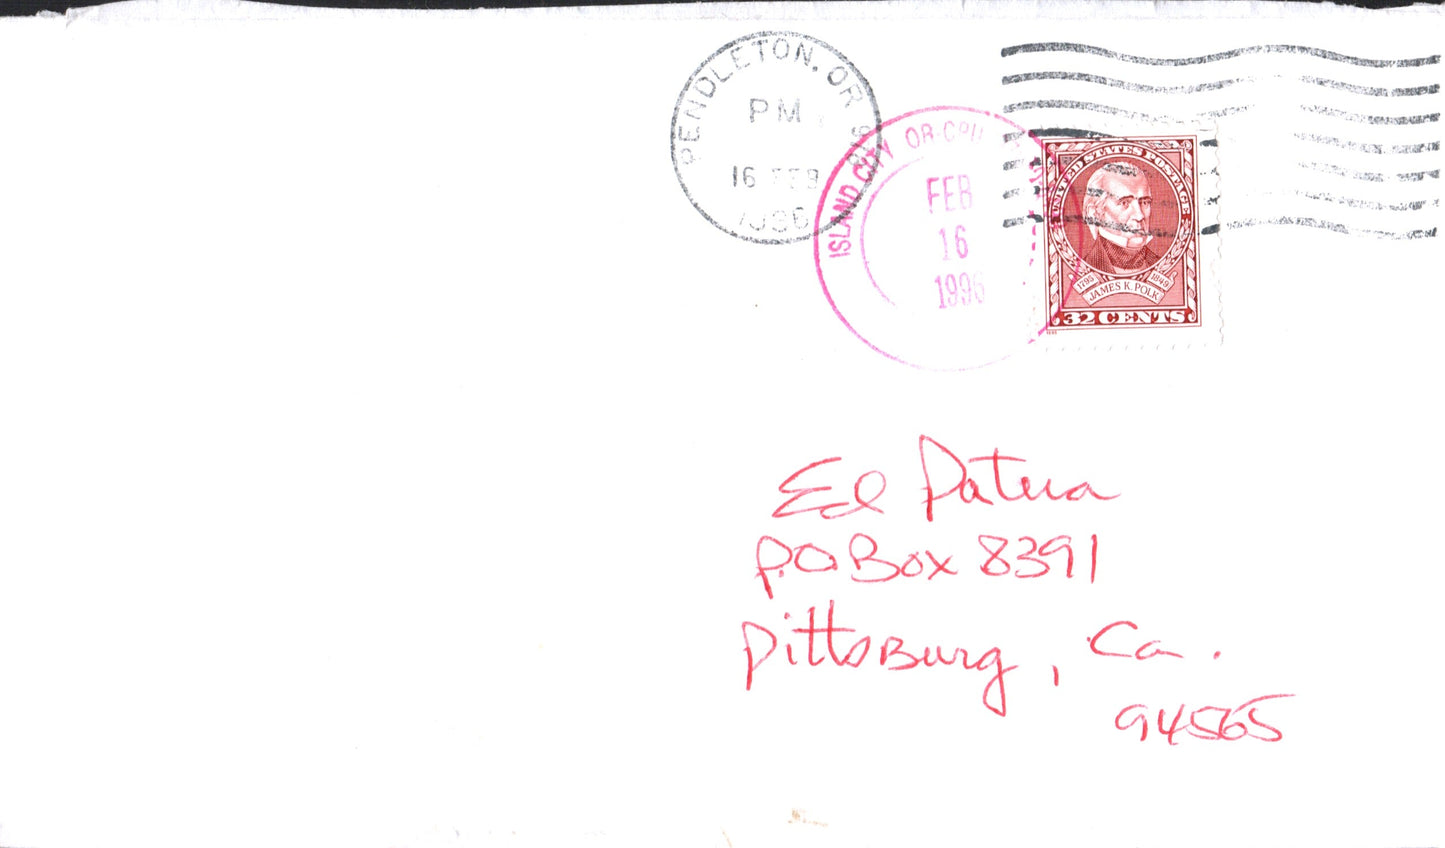 PENDLETON, OR 978
PM
16 FEB
1996
ISLAND CITY OR
FEB
16
1996
UNITED STATES POSTAGE
1795 1849
JAMES K. POLK
32 CENTS
Ed Patera
P.O Box 8391
Pittsburg, Ca.
94565